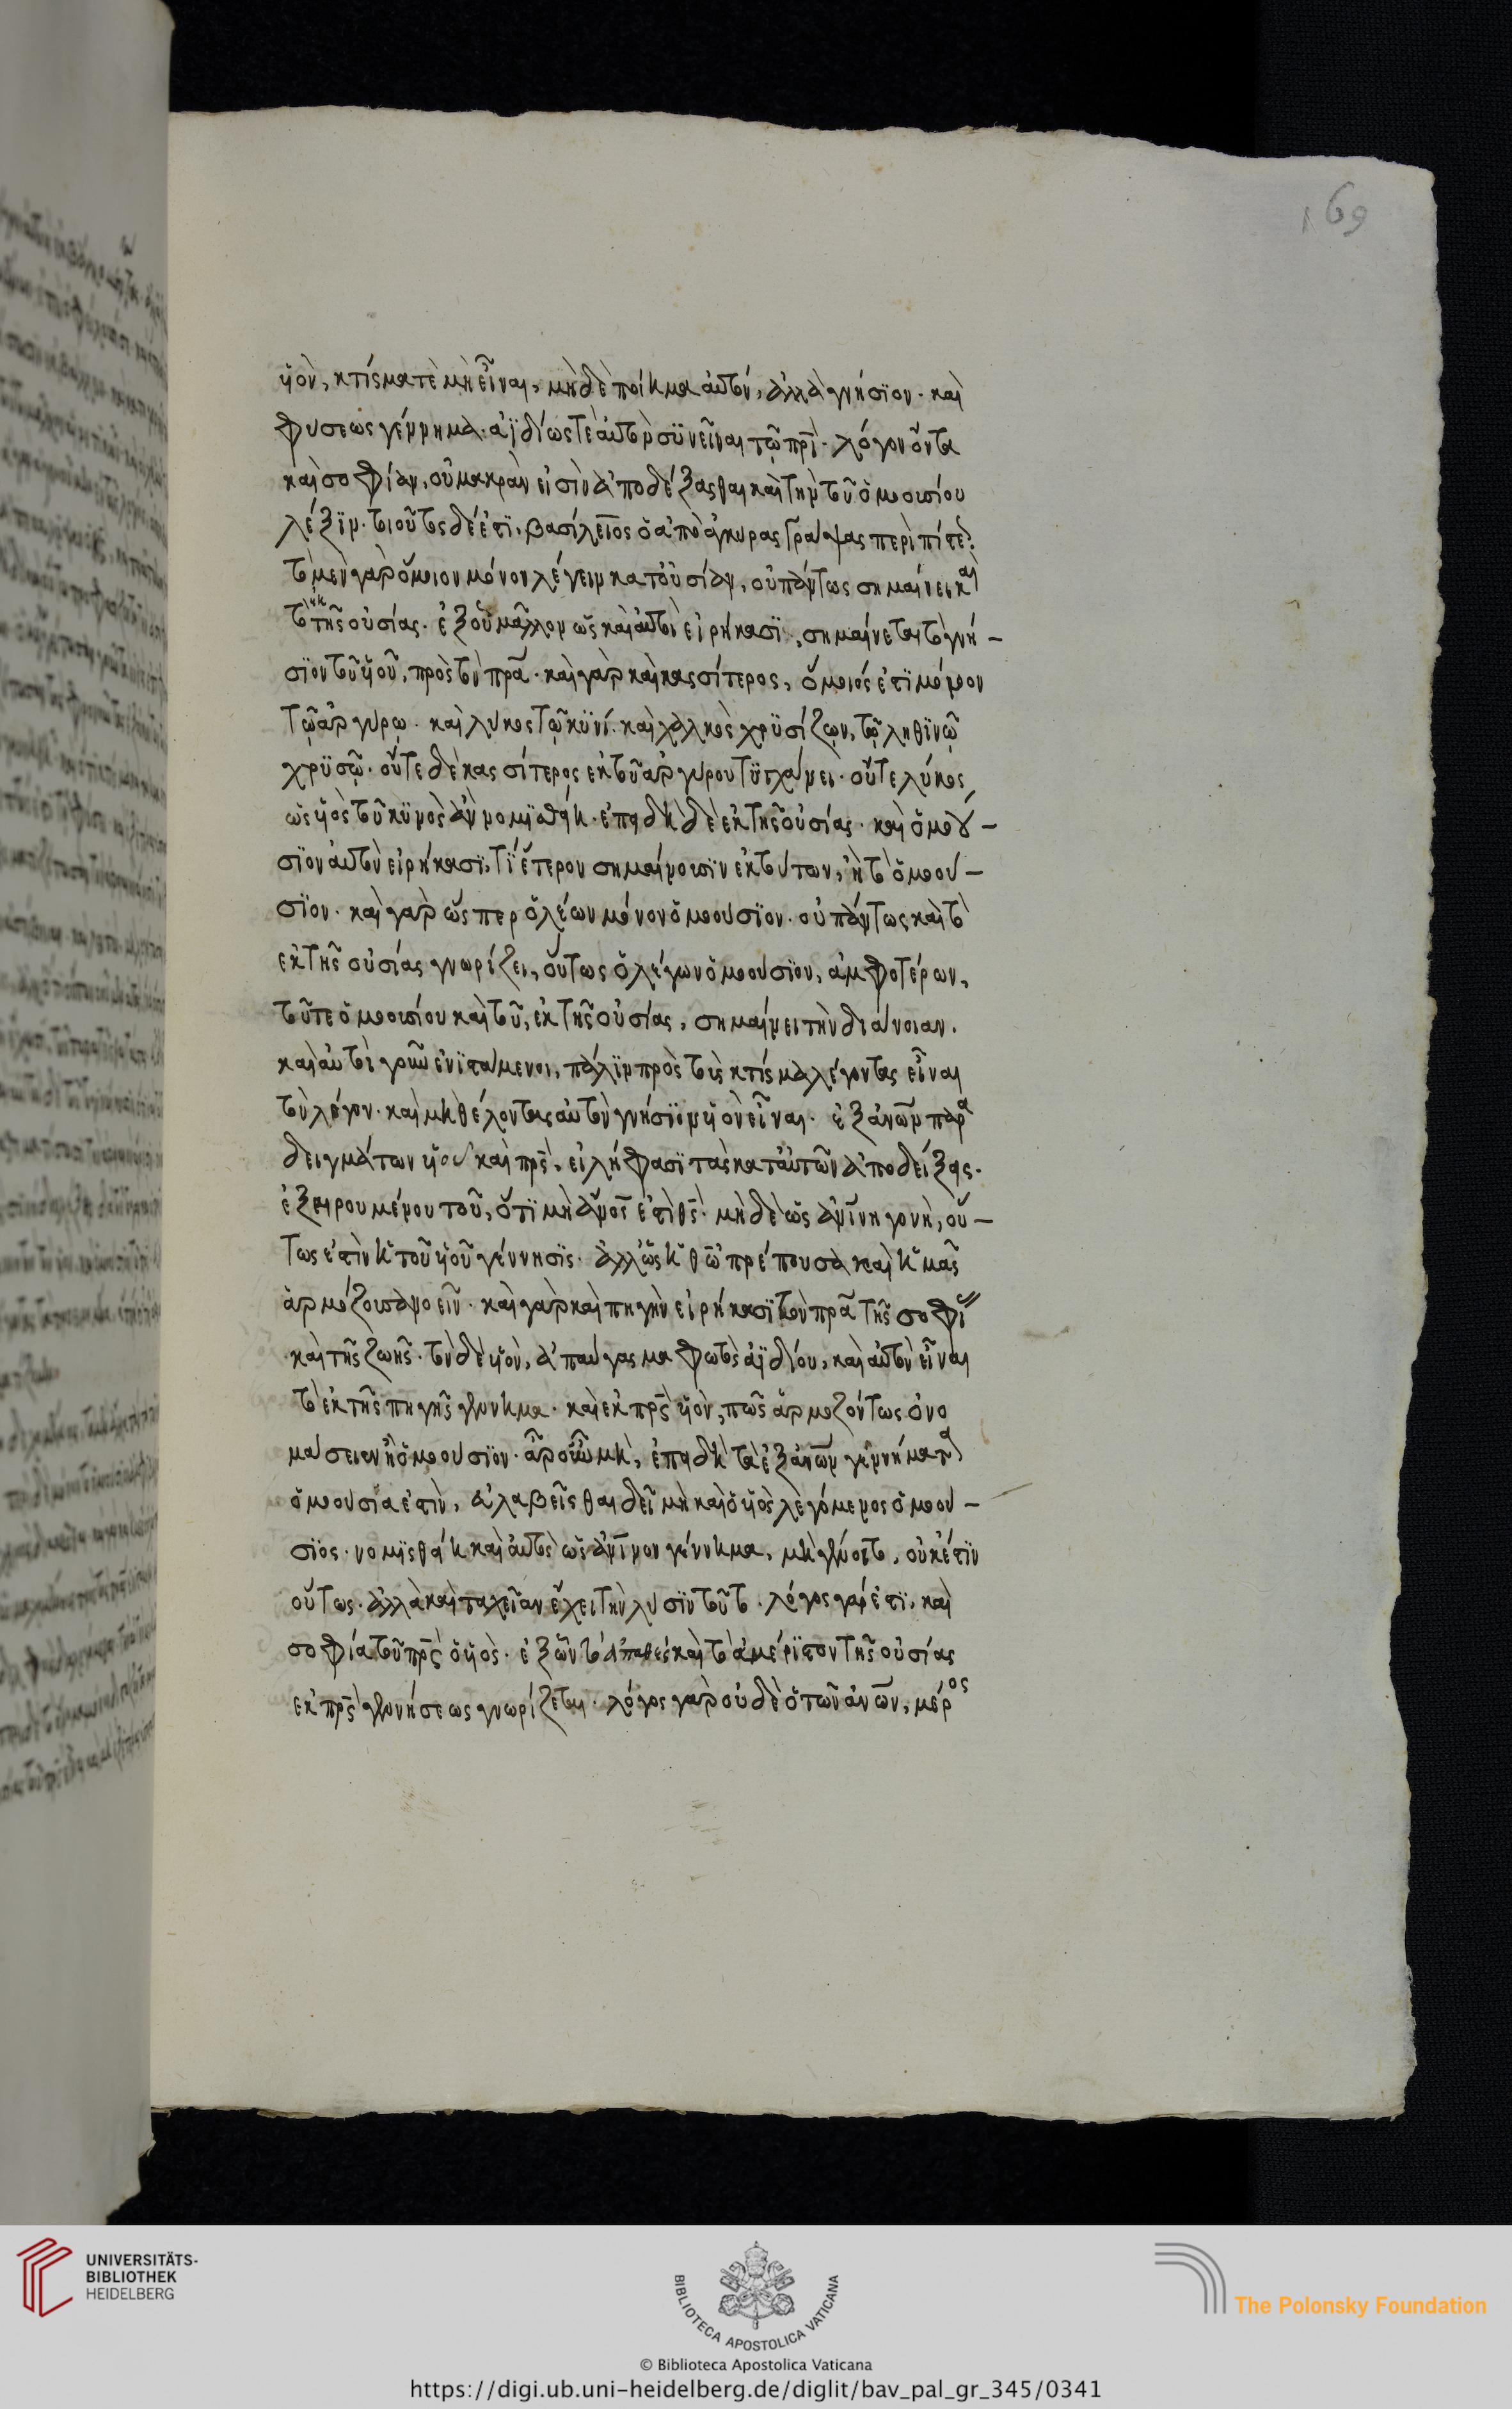 169
υἱὸν, κτίσμα τὲ μὴ εἶναι, μὴδὲ ποίημα αὐτόν, ἀλλὰ γνήσϊον · καὶ
φύσεως γέννημα · ἀϊδίως τὲ αὐτὸν συνεῖναι τῶ πρὶ · λόγον ὄντα
καὶ σοφίαν, οὐ μακράν εἰσὶν ἀποδέξασθαι καὶ τὴν τοῦ ὁμοουσίου
λέξϊν · τοιοῦτος δέ ἐστϊ, βασίλειος ὁ ἀπὸ ἀγκυρας γράψας περὶ πίστε
τὸ μὲν γὰρ ὅμοιον μόνον λέγειν κατ οὐσίαν, οὐ πάντως σημαίνει καὶ
τὸ ἐκ τῆς οὐσίας · ἐξ οὗ μᾶλλον ὡς καὶ αὐτοὶ εἰρήκασϊ, σημαίνεται τὸ γνή –
σϊον τοῦ υἱοῦ, πρὸς τὸν πρα · καὶ γὰρ καὶ κασσίτερος, ὅμοιός ἐστϊ μόνον
τῶ ἀργύρω · καὶ λυκος τῶ κϋνί · καὶ χαλκὸς χρϋσίζων, τῶ ληθϊνῶ
χρϋσῶ · οὔτε δὲ κασσίτερος ἐκ τοῦ ἀργυρου τϋγχάνει · οὔτε λύκος
ὡς υἱὸς τοῦ κϋνὸς ἂν νομισθείη · ἐπειδὴ δὲ ἐκ τῆς οὐσίας · καὶ ὁμοού –
σϊον αὐτὸν εἰρήκασϊ, τί ἕτερον σημαίνουσϊν ἐκ τούτων, ἢ τὸ ὁμοου –
σϊον · καὶ γὰρ ὥσπερ ὁ λέων μόνον ὁμοουσϊον · οὐ πάντως καὶ τὸ
ἐκ τῆς οὐσίας γνωρίζει, οὕτως ὁ λέγων ὁμοουσϊον, ἀμφοτέρων,
τοῦ τε ὁμοουσίου καὶ τοῦ, ἐκ τῆς οὐσίας, σημαίνει τὴν διάνοιαν.
καὶ αὐτοὶ γοῦν ἐνϊστάμενοι, πάλϊν πρὸς τοὺς κτίσμα λέγοντας εἶναι
τὸν λόγον · καὶ μὴ θέλοντας αὐτὸν γνήσϊον υἱὸν εἶναι · ἐξ ἀνων παρα
δειγμάτων υἱοῦ καὶ πρς, εἰλήφασϊ τὰς κατ αὐτῶν ἀποδείξεις.
ἐξαιρουμένου τοῦ, ὅτϊ μὴ ἄνος ἐστὶ θς · μὴ δὲ ὡς ἀνϊνη γονὴ, οὕ –
τως ἐστὶν ἡ τοῦ υἱοῦ γέννησϊς · ἀλλ ὡς ἡ θω πρέπουσα καὶ ἡμᾶς
ἁρμόζουσα νοεῖν · καὶ γὰρ καὶ πηγὴν εἰρήκασϊ τὸν πρα τῆς σοφί
καὶ τῆς ζωῆς · τὸν δὲ υἱὸν, ἀπαύγασμα φωτὸς ἀϊδίου, καὶ αὐτὸν εἶναι
τὸ ἐκ τῆς πηγῆς γέννημα · καὶ ἐκ πρς υἱὸν, πῶς ἁρμοζόντως ὀνο
μάσειεν ἢ ὁμοουσϊον · ἆρ οὖν μὴ, ἐπειδὴ τὰ ἐξ ἀνων γεννήματα
ὁμοουσία ἐστὶν, ἀλαβεῖσθαι δεῖ μὴ καὶ ὁ υἱὸς λεγόμενος ὁμοου –
σϊος · νομϊσθείη καὶ αὐτὸς ὡς ἀνϊνον γέννημα, μὴ γένοιτο, οὐκ ἔστϊν
οὕτως · ἀλλὰ καὶ ταχεῖαν ἔχει τὴν λυσϊν τοῦτο · λόγος γάρ ἐστϊ, καὶ
σοφία τοῦ πρς ὁ υἱὸς · ἐξ ὧν τὸ ἀπαθὲς καὶ τὸ ἀμέρϊστον τῆς οὐσίας
ἐκ πρς γεννήσεως γνωρίζεται · λόγος γὰρ οὐδὲ ὁ τῶν ἀνων, μέρος
UNIVERSITÄTS-
BIBLIOTHEK
HEIDELBERG
BIBLIOTECA APOSTOLICA VATICANA
The Polonsky Foundation
© Biblioteca Apostolica Vaticana
https://digi.ub.uni-heidelberg.de/diglit/bav_pal_gr_345/0341